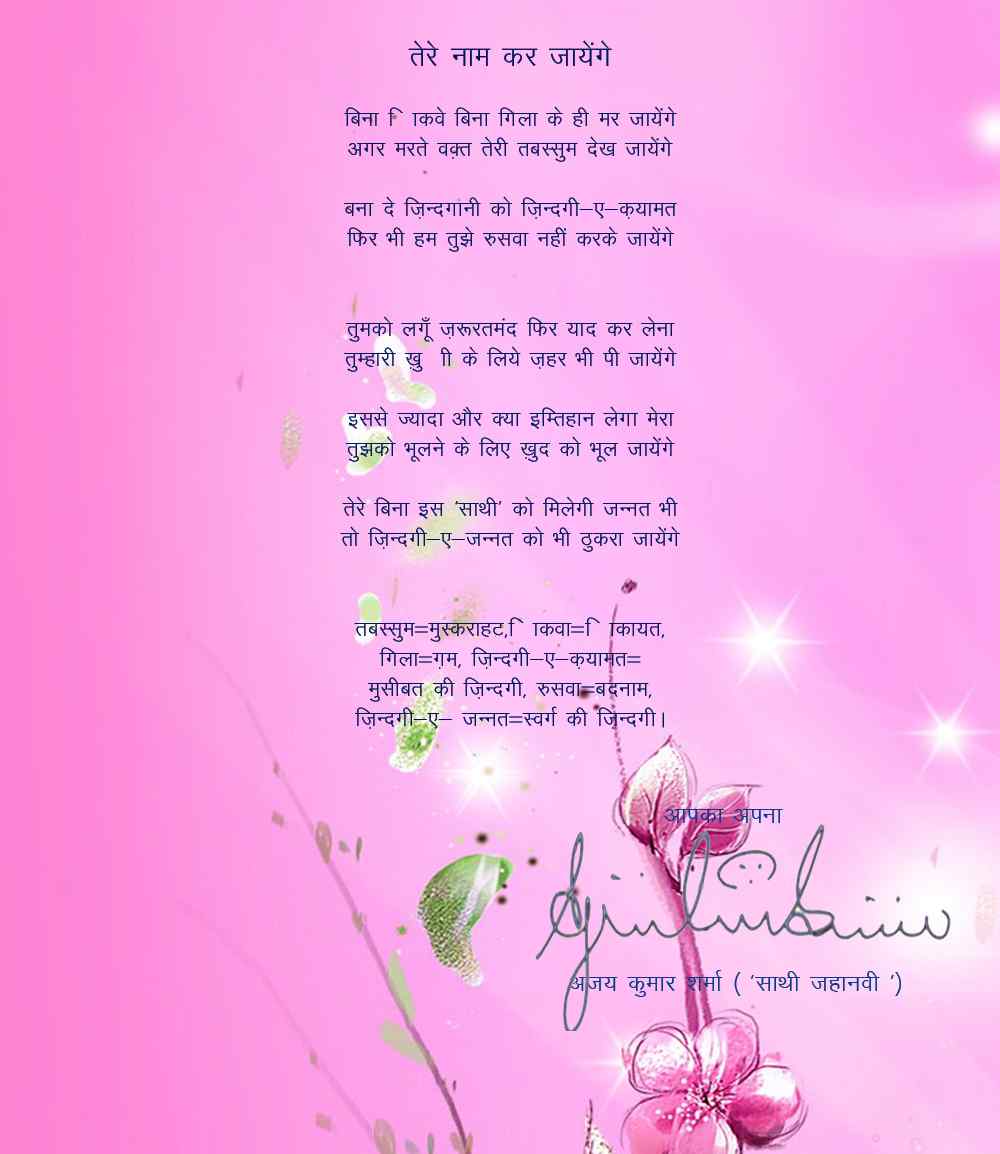 तेरे नाम कर जायेंगे
बिना ि ाकवे बिना गिला के ही मर जायेंगे
अगर मरते वक़्त तेरी तबस्सुम देख जायेंगे
बना दे ज़िन्दगांनी को ज़िन्दगी–ए–क़यामत
फिर भी हम तुझे रुसवा नहीं करके जायेंगे
तुमको लगूँ ज़रूरतमंद फिर याद कर लेना
तुम्हारी ख़ु ाी के लिये ज़हर भी पी जायेंगे
इससे ज्यादा और क्या इम्तिहान लेगा मेरा
तुझको भूलने के लिए ख़ुद को भूल जायेंगे
तेरे बिना इस ‘साथी’ को मिलेगी जन्नत भी
तो ज़िन्दगी–ए–जन्नत को भी ठुकरा जायेंगे
तबस्सुम=मुस्कराहट,ि ाकवा=ि ाकायत,
गिला=ग़म, ज़िन्दगी–ए–क़यामत=
मुसीबत की ज़िन्दगी, रुसवा=बदनाम,
ज़िन्दगी–ए– जन्नत=स्वर्ग की ज़िन्दगी।
आपका अपना
अजय कुमार शर्मा ( ‘साथी जहानवी ’)